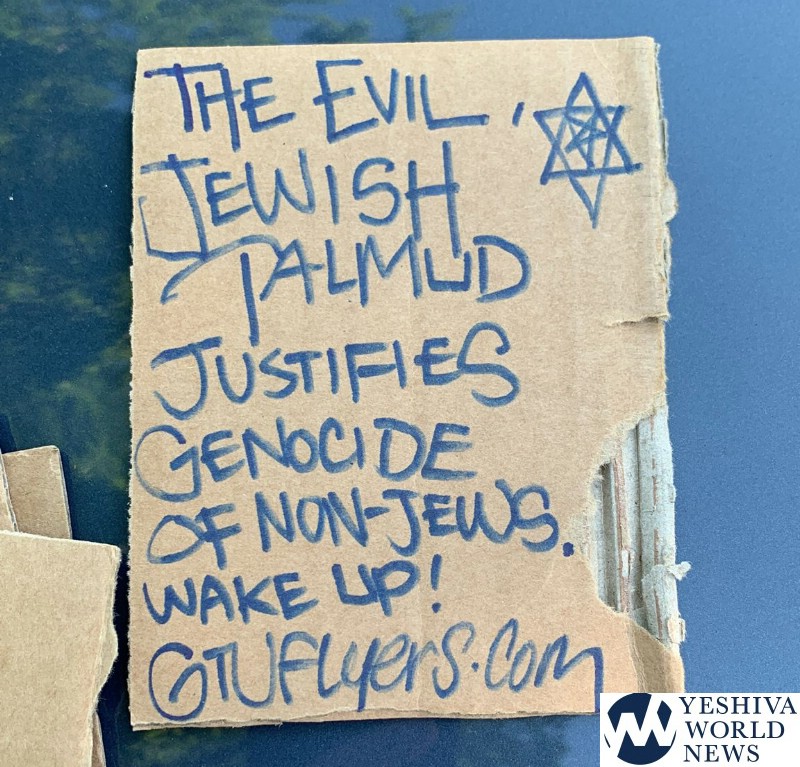 THE EVIL,
JEWISH
TALMUD
JUSTIFIES
GENOCIDE
OF NON-JEWS.
WAKE UP!
GTUFlyerS.Com
YESHIVA
WORLD
NEWS